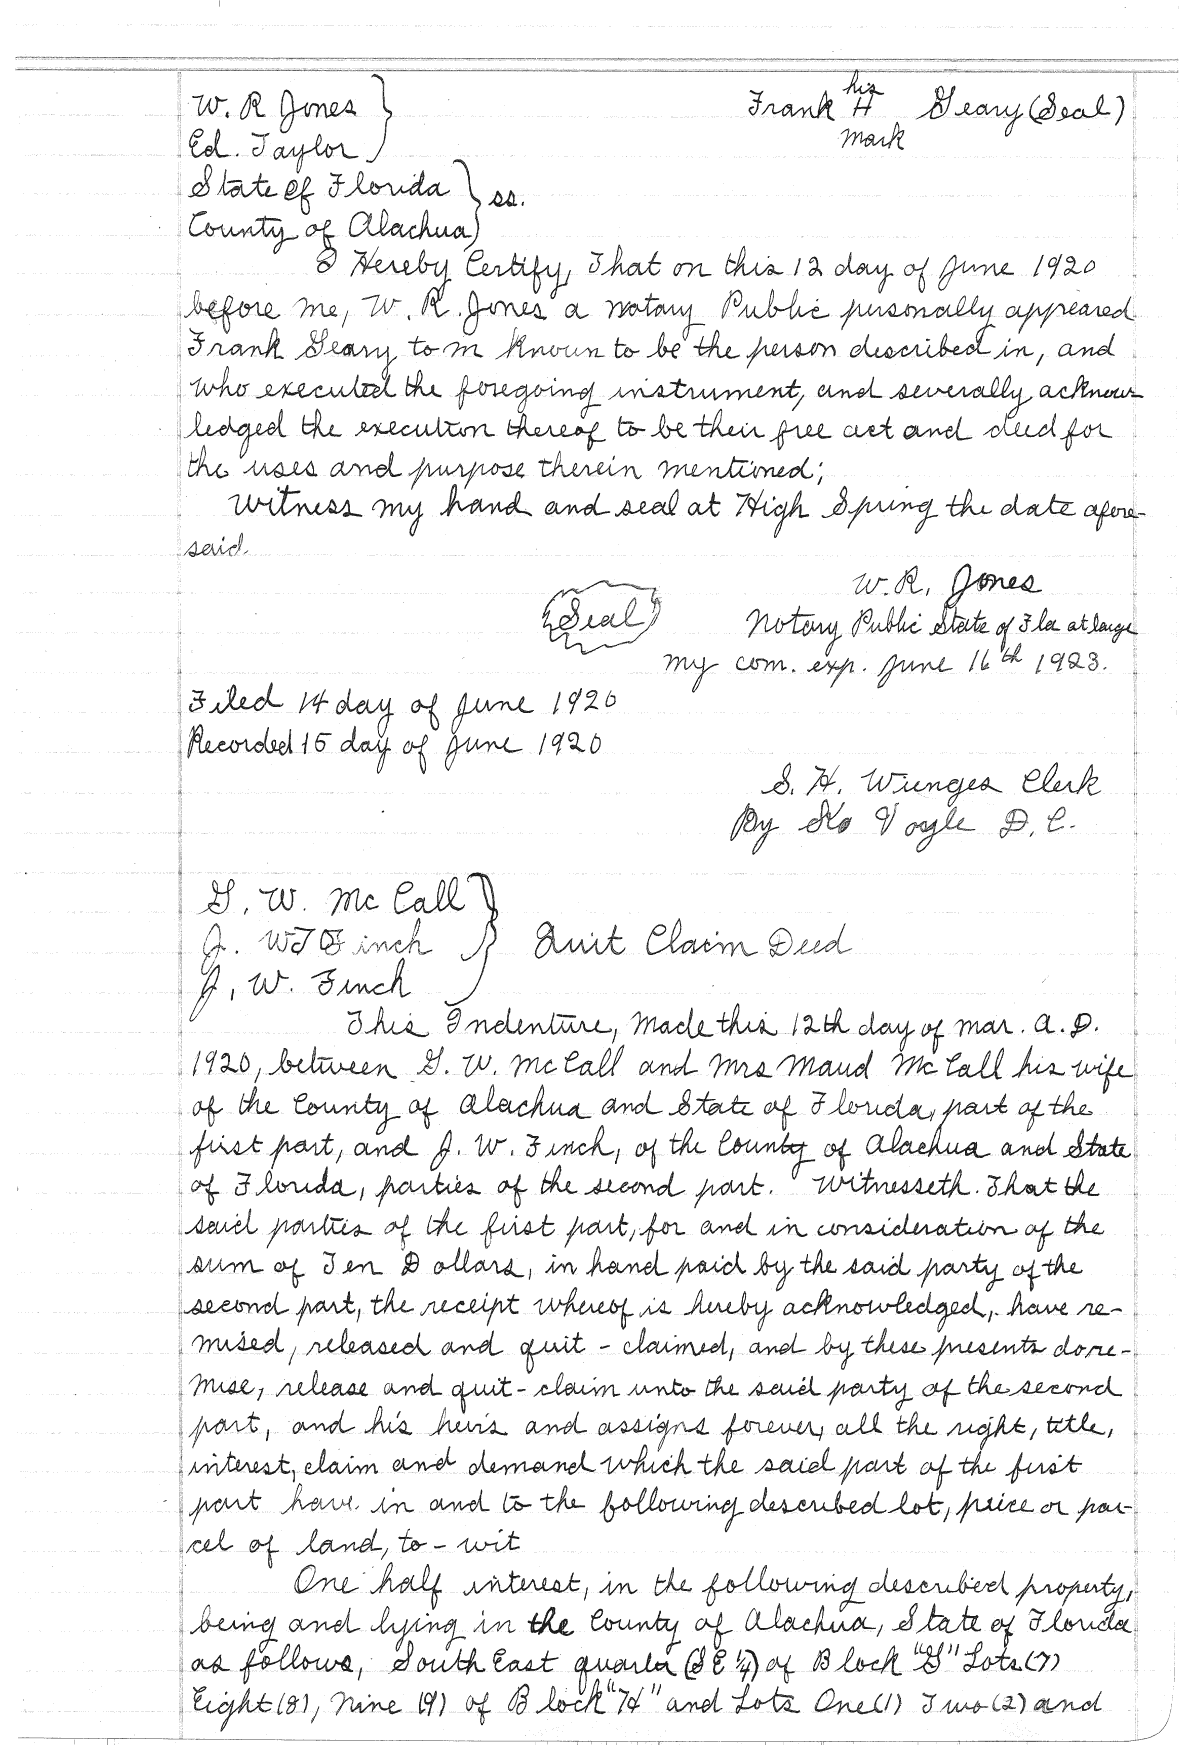 W. R Jones
Ed. Taylor
Frank his H mark Geary (Seal)
State of Florida
County of Alachua
ss.
I Hereby Certify, That on this 12 day of June 1920
before me, W. R. Jones a Notary Public personally appeared
Frank Geary to m known to be the person described in, and
who executed the foregoing instrument, and severally acknow-
ledged the execution thereof to be their free act and deed for
the uses and purpose therein mentioned;
Witness my hand and seal at High Spring the date afore-
said.
Seal
W. R, Jones
Notary Public State of Fla at large
My com. exp. June 16th 1923.
Filed 14 day of June 1920
Recorded 15 day of June 1920
S. H. Wienges Clerk
By D. C.
G. W. McCall
J. W Finch
J, W. Finch
Quit Claim Deed
This Indenture, Made this 12th day of Mar. A. D.
1920, between G. W. McCall and Mrs Maud McCall his wife
of the County of Alachua and State of Florida, part of the
first part, and J. W. Finch, of the County of Alachua and State
of Florida, parties of the second part. Witnesseth. That the
said parties of the first part, for and in consideration of the
sum of Ten Dollars, in hand paid by the said party of the
second part, the receipt whereof is hereby acknowledged, have re-
mised, released and quit - claimed, and by these presents do re-
mise, release and quit - claim unto the said party of the second
part, and his heirs and assigns forever, all the right, title,
interest, claim and demand which the said part of the first
part have in and to the following described lot, peice or par-
cel of land, to - wit
One half interest, in the following described property,
being and lying in the County of Alachua, State of Florida
as follows, South East quarter (SE 1/4) of Block "G" Lots (7)
Eight (8), Nine (9) of Block "H" and Lots One (1) Two (2) and